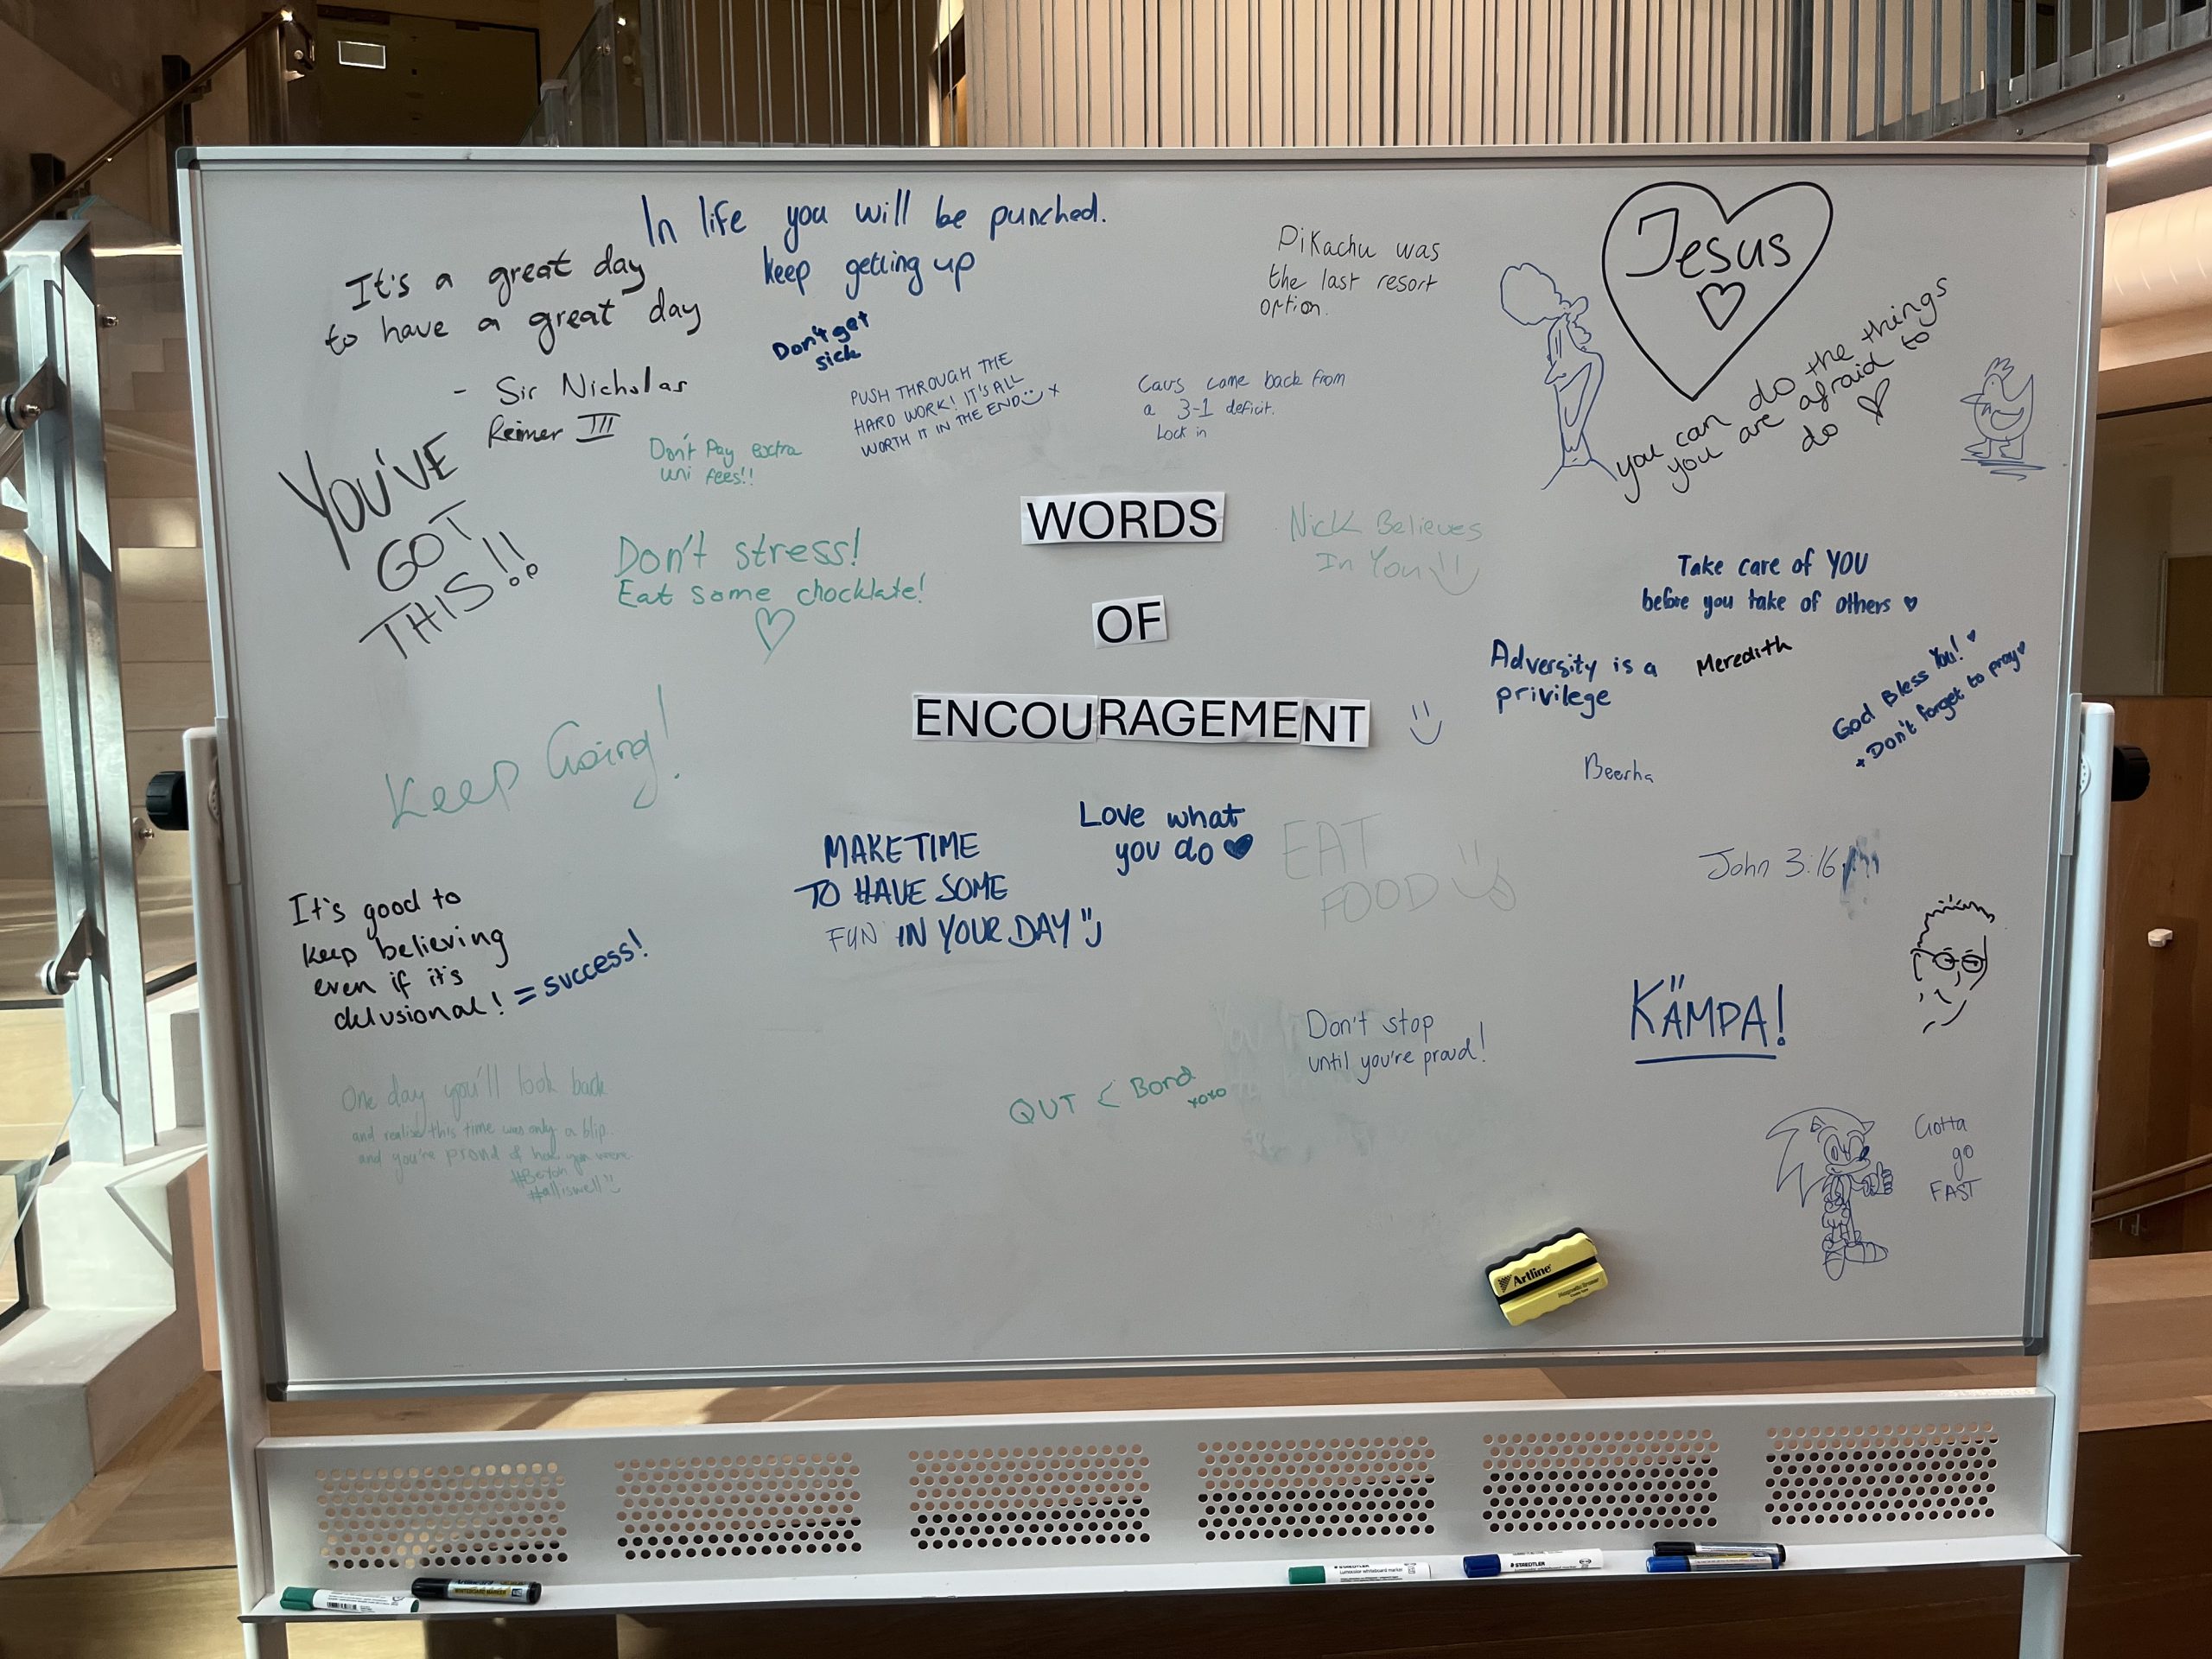 In life you will be punched.
keep getting up
It's a great day
to have a great day
- Sir Nicholas
Reimer III
Don't get
sick
PUSH THROUGH THE
HARD WORK! IT'S ALL
WORTH IT IN THE END x
Pikachu was
the last resort
option.
Cavs came back from
a 3-1 deficit.
Lock in
Jesus
you can do the things
you are afraid to
do
YOU'VE
GOT
THIS!!
Don't Pay extra
uni fees!!
Don't stress!
Eat some chocklate!
WORDS
OF
ENCOURAGEMENT
Nick Believes
In You
Take care of YOU
before you take of others
Adversity is a
privilege
Meredith
God Bless You!
+ Don't forget to pray
Beerha
Keep Going!
MAKE TIME
TO HAVE SOME
FUN IN YOUR DAY
Love what
you do
EAT
FOOD
John 3:16
It's good to
keep believing
even if it's
delusional! = success!
KÄMPA!
Don't stop
until you're proud!
QUT < Bond
xoxo
One day you'll look back
and realise this time was only a blip
and you're proud of how you were
#alliswell
Gotta
go
FAST
Artline
STAEDTLER
STAEDTLER